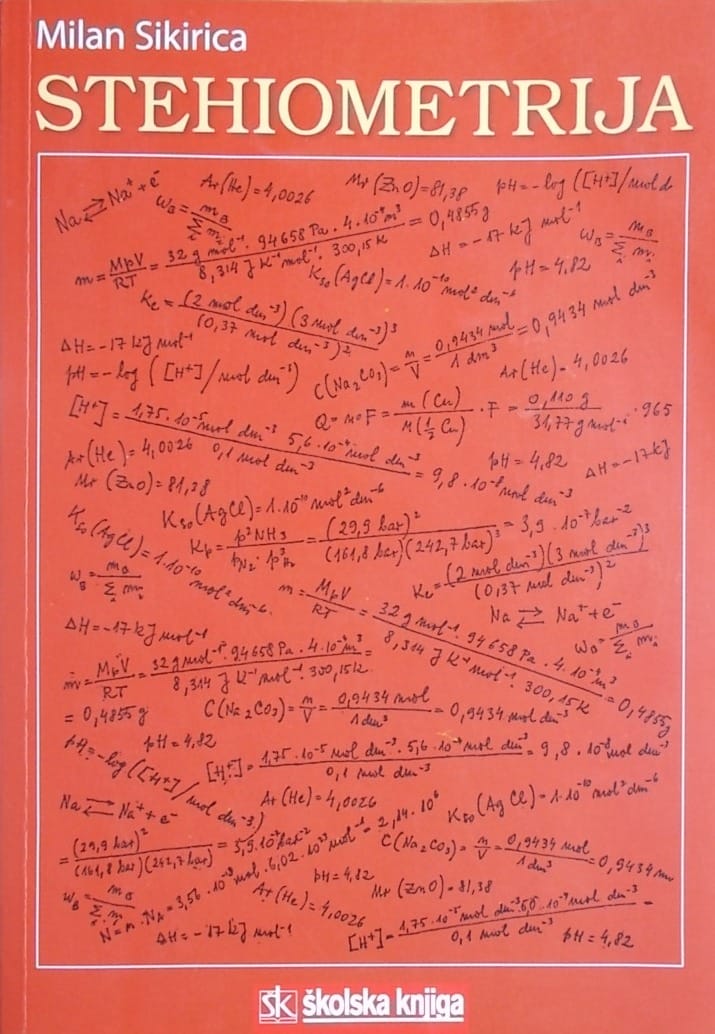 Milan Sikirica
STEHIOMETRIJA
Na ⇌ Na⁺ + e⁻
w_B = m_B / Σ_i m_i
Ar(He) = 4,0026
Mr(ZnO) = 81,38
pH = -log([H⁺]/mol d
m = MpV / RT = 32 g mol⁻¹ · 94658 Pa · 4·10⁻⁴ m³ / 8,314 J K⁻¹ mol⁻¹ · 300,15 K = 0,4855 g
ΔH = -17 kJ mol⁻¹
w_B = m_B / Σ_i m_i
Kso(AgCl) = 1·10⁻¹⁰ mol² dm⁻⁶
pH = 4,82
Kc = (2 mol dm⁻³)(3 mol dm⁻³)³ / (0,37 mol dm⁻³)²
ΔH = -17 kJ mol⁻¹
C(Na₂CO₃) = n/V = 0,9434 mol / 1 dm³ = 0,9434 mol dm⁻³
pH = -log([H⁺]/mol dm⁻³)
Ar(He) = 4,0026
[H⁺] = 1,75·10⁻⁵ mol dm⁻³ 5,6·10⁻⁴ mol dm⁻³ / 0,1 mol dm⁻³ = 9,8·10⁻⁸ mol dm⁻³
Q = n·F = m(Cu) / M(½ Cu) · F = 0,110 g / 31,77 g mol⁻¹ · 965
Ar(He) = 4,0026
pH = 4,82
ΔH = -17 kJ
Mr(ZnO) = 81,38
Kso(AgCl) = 1·10⁻¹⁰ mol² dm⁻⁶
Kso(AgCl) = 1·10⁻¹⁰ mol² dm⁻⁶
Kp = p²NH₃ / pN₂ · p³H₂ = (29,9 bar)² / (161,8 bar)(242,7 bar)³ = 3,9·10⁻⁷ bar⁻²
w_B = m_B / Σ_i m_i
Kc = (2 mol dm⁻³)(3 mol dm⁻³)³ / (0,37 mol dm⁻³)²
m = MpV / RT = 32 g mol⁻¹ · 94658 Pa · 4·10⁻⁴ m³ / 8,314 J K⁻¹ mol⁻¹ · 300,15 K = 0,4855 g
Na ⇌ Na⁺ + e⁻
ΔH = -17 kJ mol⁻¹
w_B = m_B / Σ_i m_i
m = MpV / RT = 32 g mol⁻¹ · 94658 Pa · 4·10⁻⁴ m³ / 8,314 J K⁻¹ mol⁻¹ · 300,15 K =
= 0,4855 g
C(Na₂CO₃) = n/V = 0,9434 mol / 1 dm³ = 0,9434 mol dm⁻³
pH = -log([H⁺]/mol dm⁻³)
pH = 4,82
[H⁺] = 1,75·10⁻⁵ mol dm⁻³ · 5,6·10⁻⁴ mol dm⁻³ / 0,1 mol dm⁻³ = 9,8·10⁻⁸ mol dm⁻³
Na ⇌ Na⁺ + e⁻
Ar(He) = 4,0026
Kso(AgCl) = 1·10⁻¹⁰ mol² dm⁻⁶
= (29,9 bar)² / (161,8 bar)(242,7 bar) = 3,9·10⁻⁷ bar⁻²
C(Na₂CO₃) = n/V = 0,9434 mol / 1 dm³ = 0,9434 m
w_B = m_B / Σ_i m_i
N = n·N_A = 3,56·10⁻¹⁸ mol · 6,02·10²³ mol⁻¹ = 2,14·10⁶
pH = 4,82
Ar(He) = 4,0026
Mr(ZnO) = 81,38
ΔH = -17 kJ mol⁻¹
[H⁺] = 1,75·10⁻⁵ mol dm⁻³ 5,6·10⁻⁴ mol dm⁻³ / 0,1 mol dm⁻³ =
pH = 4,82
šk školska knjiga